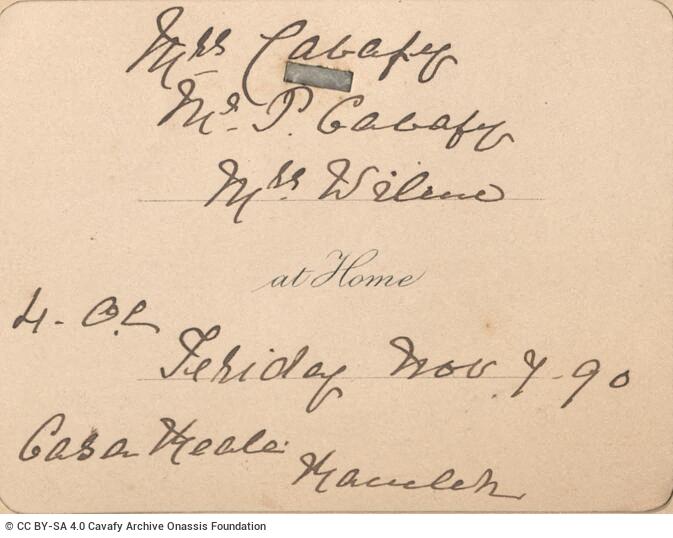 Mrs Cavafy
Mr. P. Cavafy
Mrs. Wilme
at Home
4. OC
Friday Nov. 7 - 90
Casa Reale
Ramleh
© CC BY-SA 4.0 Cavafy Archive Onassis Foundation